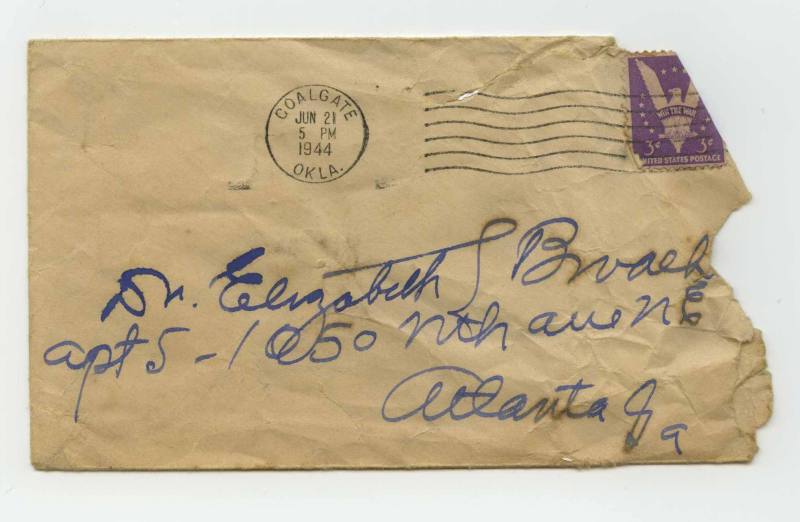 COALGATE
JUN 21
5 PM
1944
OKLA.
WIN THE WAR
3¢ 3¢
UNITED STATES POSTAGE
Dr. Elizabeth L Broach
apt 5 - 1050 Nth ave NE
Atlanta Ga